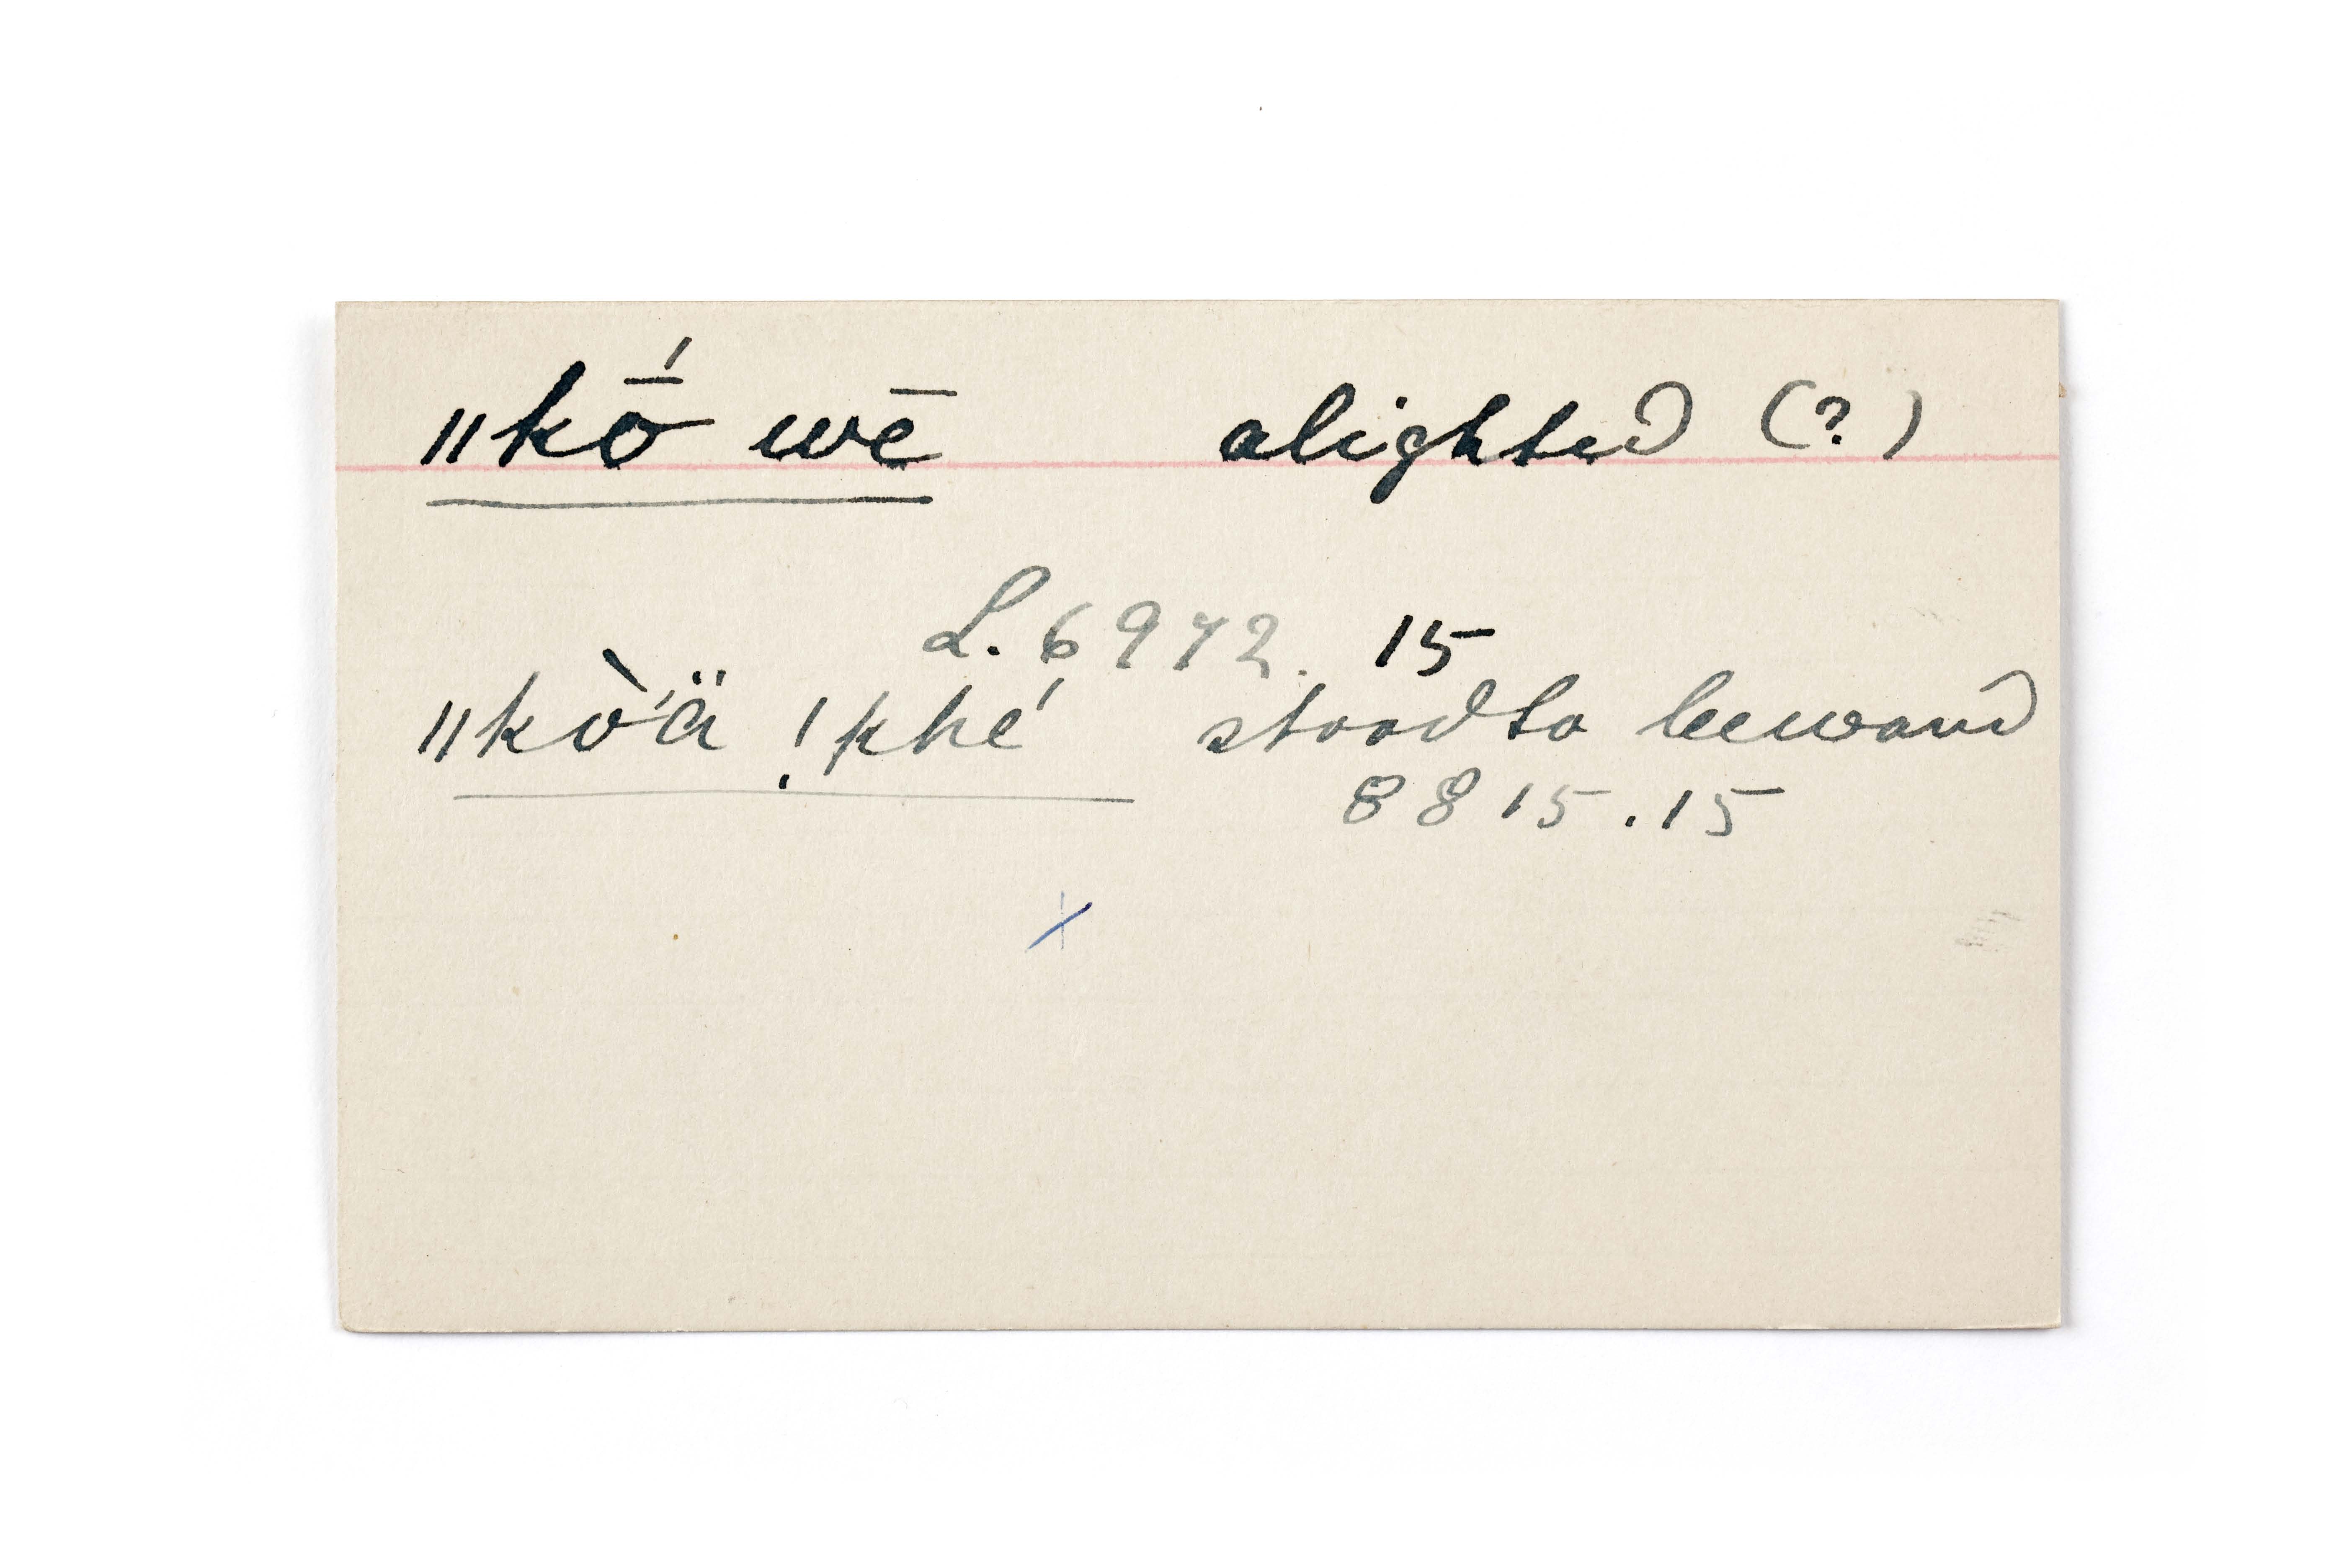 ǁkṓ wē alighted (?)
L. 6972. 15
ǁkò'ä !khé stood to leeward
8815.15